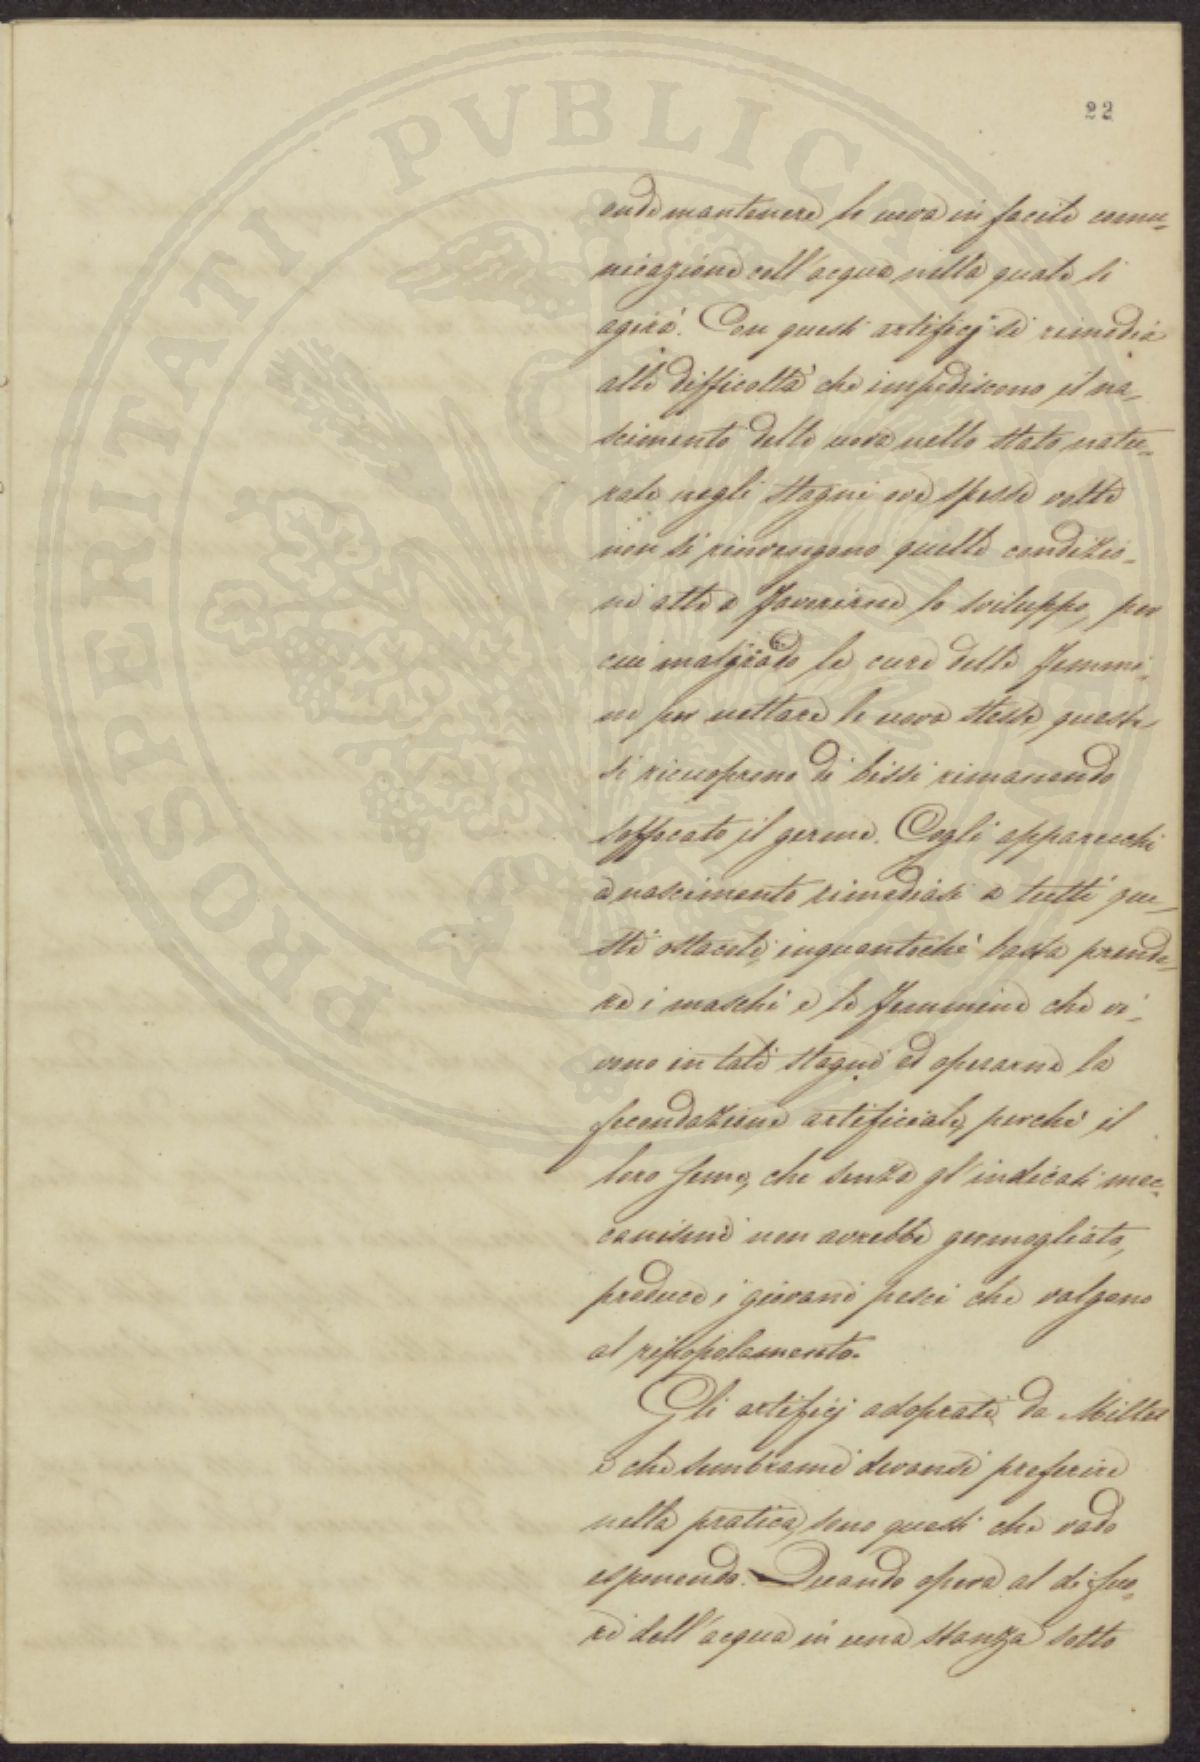 22
onde mantenere le uova in facile comu-
nicazione coll'acqua nella quale si
agirà. Con questi artificj si rimedia
alle difficoltà che impediscono il na-
scimento delle uova nello stato natu-
rale negli stagni ove spesse volte
non si rinvengono quelle condizio-
ni atte a favorirne lo sviluppo, per
cui malgrado le cure delle femmi-
ne per nettare le uova stesse, queste
si ricuoprono di bissi rimanendo
soffocato il germe. Cogli apparecchi
a nascimento rimediasi a tutti que-
sti ostacoli, inquantochè basta prende-
re i maschi e le femmine che vi-
vono in tali stagni ed operarne la
fecondazione artificiale, perchè il
loro seme, che senza gl'indicati mec-
canismi non avrebbe germogliato,
produce i giovani pesci che valgono
al ripopolamento.
Gli artificj adoprati da Millet
e che sembrami devansi preferire
nella pratica, sono questi che vado
esponendo. Quando opera al di fuo-
ri dell'acqua in una stanza sotto
PROSPERITATI PVBLICAE